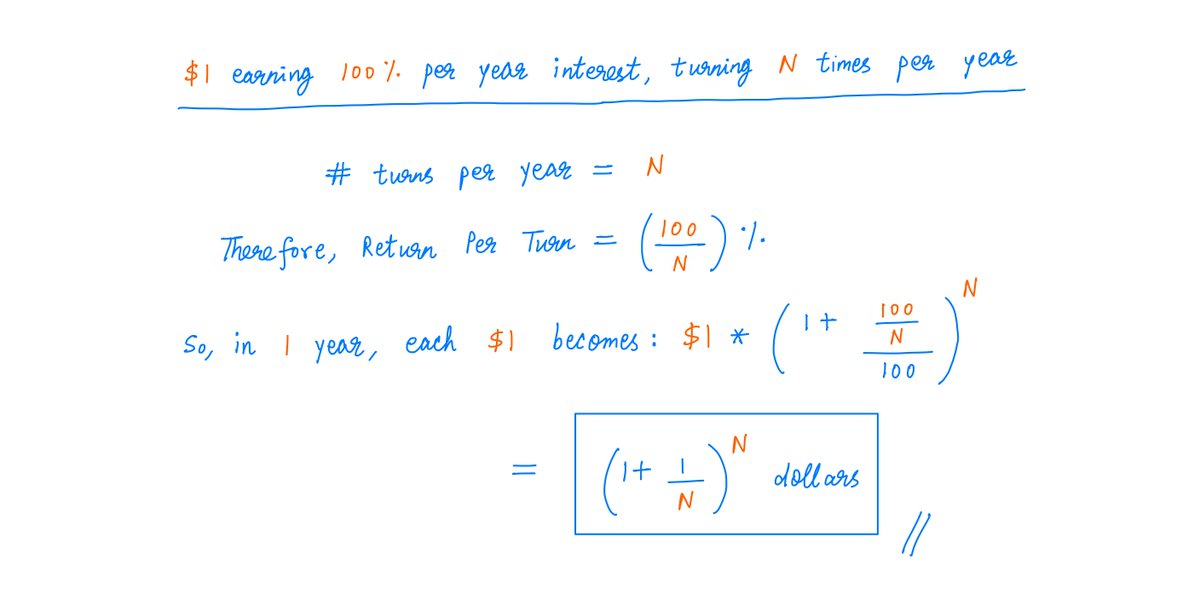 $1 earning 100% per year interest, turning N times per year
# turns per year = N
Therefore, Return Per Turn = (100/N) %.
So, in 1 year, each $1 becomes: $1 * (1 + (100/N)/100)^N
= (1 + 1/N)^N dollars //